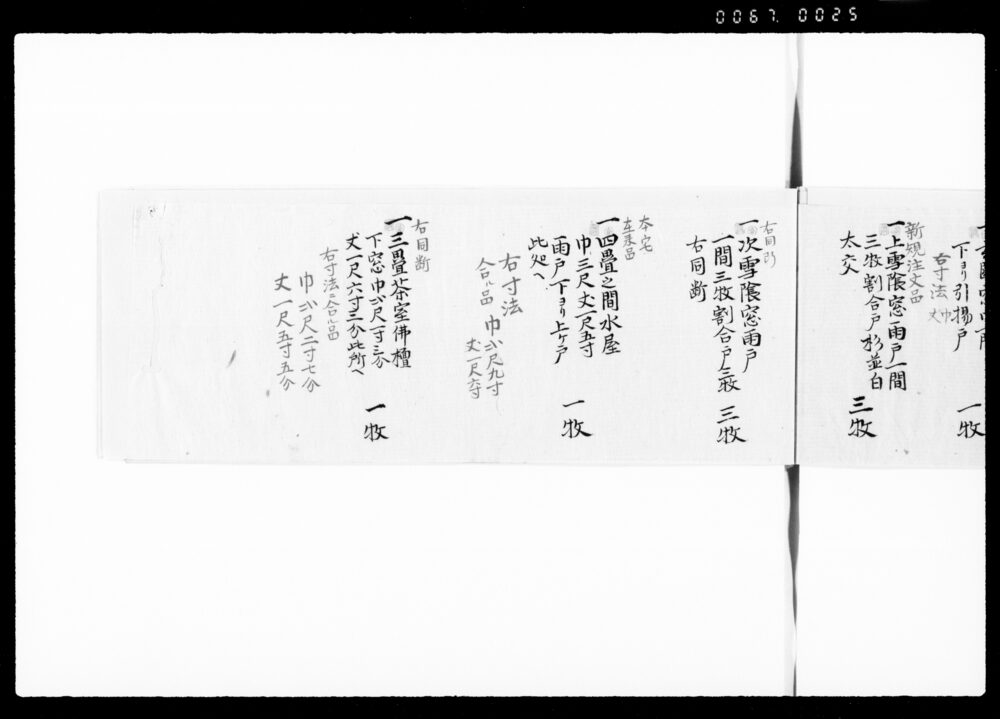 0067. 0025
下ヨリ引揚戸
一牧
右寸法 巾 丈
新規注文品
一上雪隂窓雨戸一間
三牧割合戸杉並白
太交 三牧
右同断
一次雪隂窓雨戸
一間三牧割合戸三枚
右同断 三牧
本宅
在来品
一四畳之間水屋
巾三尺丈一尺五寸
雨戸下ヨリ上ヶ戸
此処ヘ 一牧
右寸法
合ル品 巾弐尺九寸
丈一尺六寸
右同断
一三畳茶室佛檀
下窓巾弐尺一寸三分
丈一尺六寸三分此所ヘ
一牧
右寸法ニ合ル品
巾弐尺二寸七分
丈一尺五寸五分